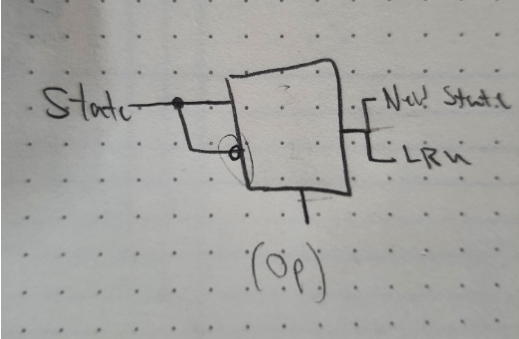 State
New State
LRU
(Op)